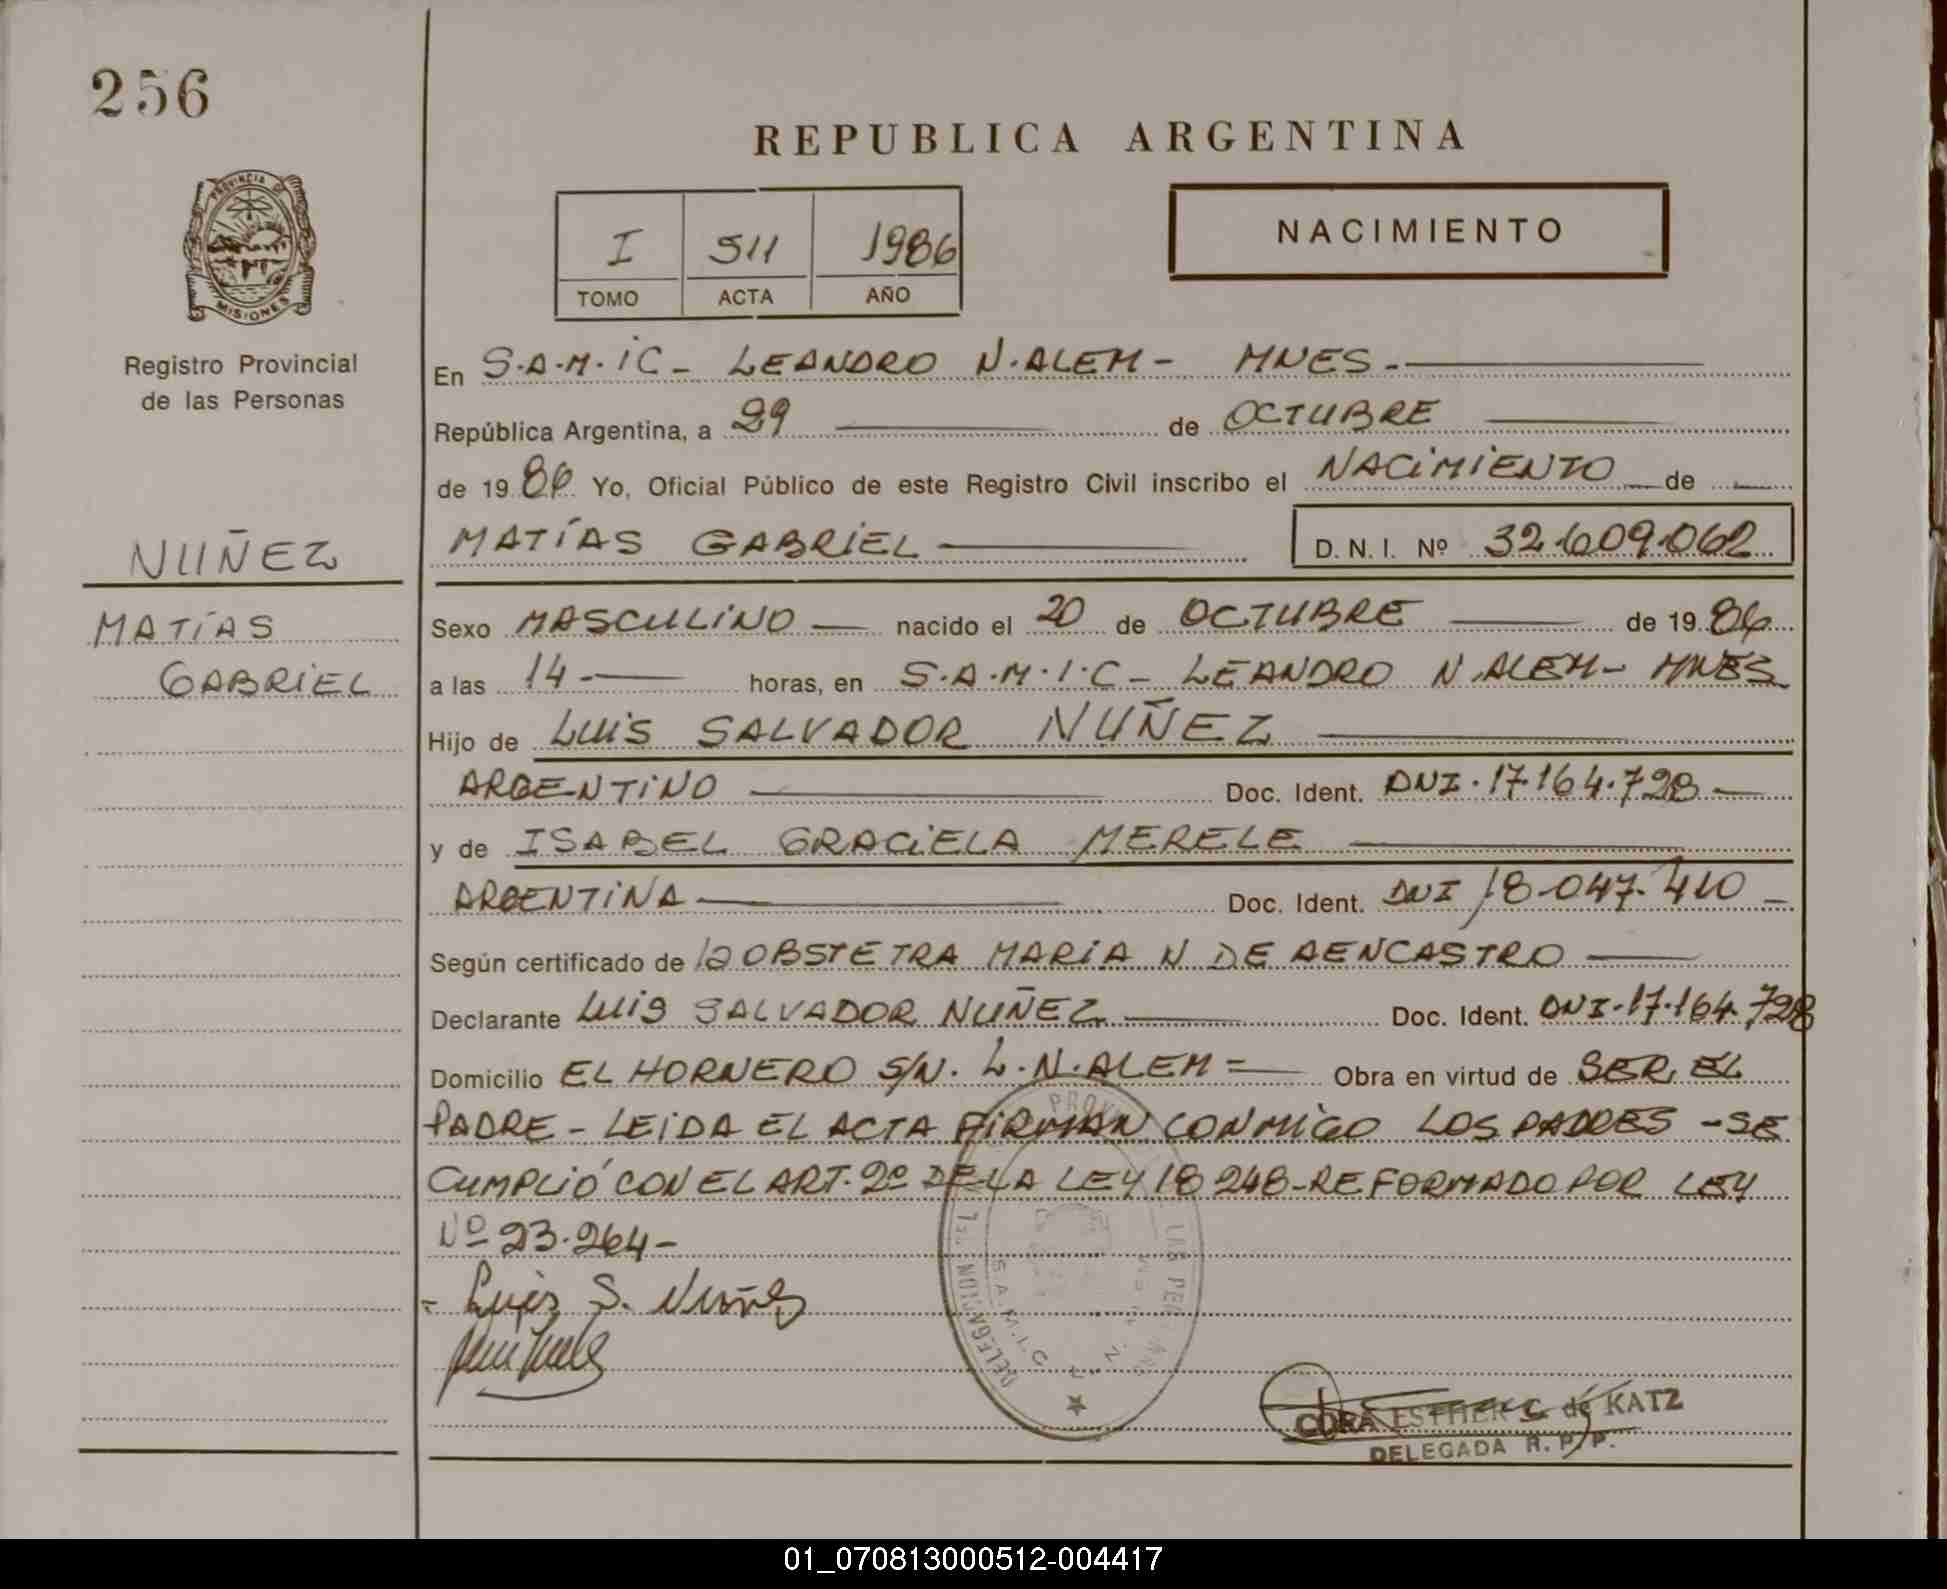 256
REPUBLICA ARGENTINA
PROVINCIA DE
MISIONES
I 511 1986
TOMO ACTA AÑO
NACIMIENTO
Registro Provincial
de las Personas
En S.A.M.iC - LEANDRO N. ALEM - MNES.-
República Argentina, a 29 de OCTUBRE
de 19 86 Yo, Oficial Público de este Registro Civil inscribo el NACiMiENTO de
NUÑEZ
MATÍAS GABRiEL
D. N. I. Nº 32.609.062
MATÍAS
GABRiEL
Sexo MASCULiNO nacido el 20 de OCTUBRE de 19 86
a las 14 horas, en S.A.M.I.C - LEANDRO N. ALEM - MNES
Hijo de LUiS SALVADOR NUÑEZ
ARGENTiNO Doc. Ident. DNI. 17.164.728
y de ISABEL GRACiELA MERELE
ARGENTiNA Doc. Ident. DNI 18.047.410
Según certificado de la OBSTETRA MARiA N DE AENCASTRO
Declarante LUiS SALVADOR NUÑEZ Doc. Ident. DNI. 17.164.728
Domicilio EL HORNERO S/N. L.N. ALEM = Obra en virtud de SER EL
PADRE - LEiDA EL ACTA FiRMAN CONMiGO LOS PADRES - SE
CUMPLiÓ CON EL ART. 2º DE LA LEY 18248 - REFORMADO POR LEY
Nº 23.264 -
- Luis S. Nuñez
DELEGACION
S.A.M.I.C
CORA ESTHER C. de KATZ
DELEGADA R. P. P.
01_070813000512-004417